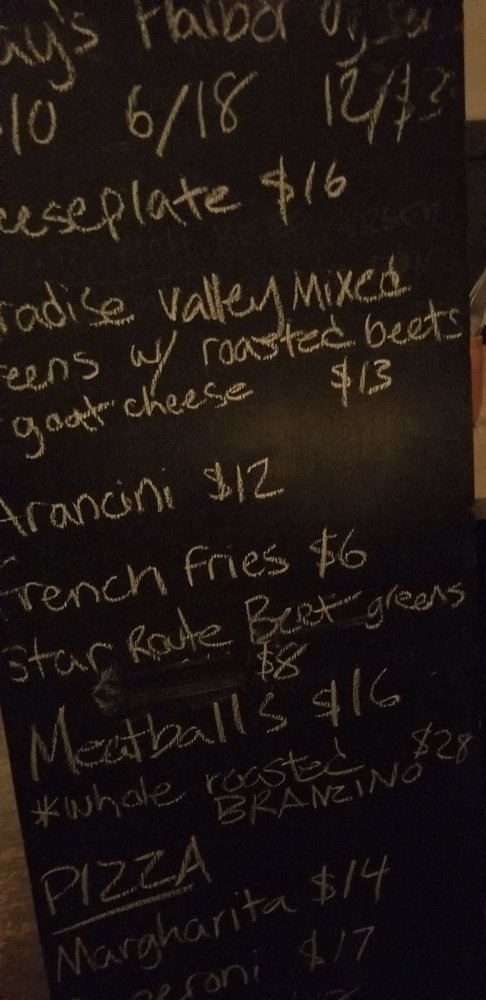 ay's Harbor Oyster
10 6/18 12/$3
eeseplate $16
radise Valley Mixed
eens w/ roasted beets
goat cheese $13
Arancini $12
French Fries $6
Star Route Beet greens
$8
Meatballs $16
*whole roasted $28
BRANZINO
PIZZA
Margharita $14
peroni $17